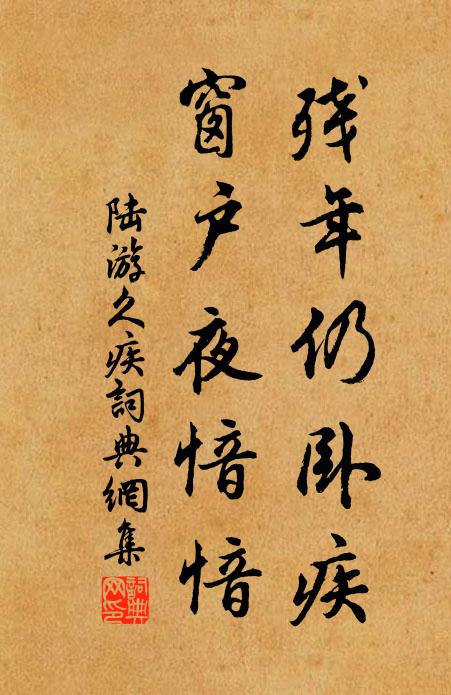 残年仍卧疾
窗户夜愔愔
陆游久疾词典網集
詞典网印